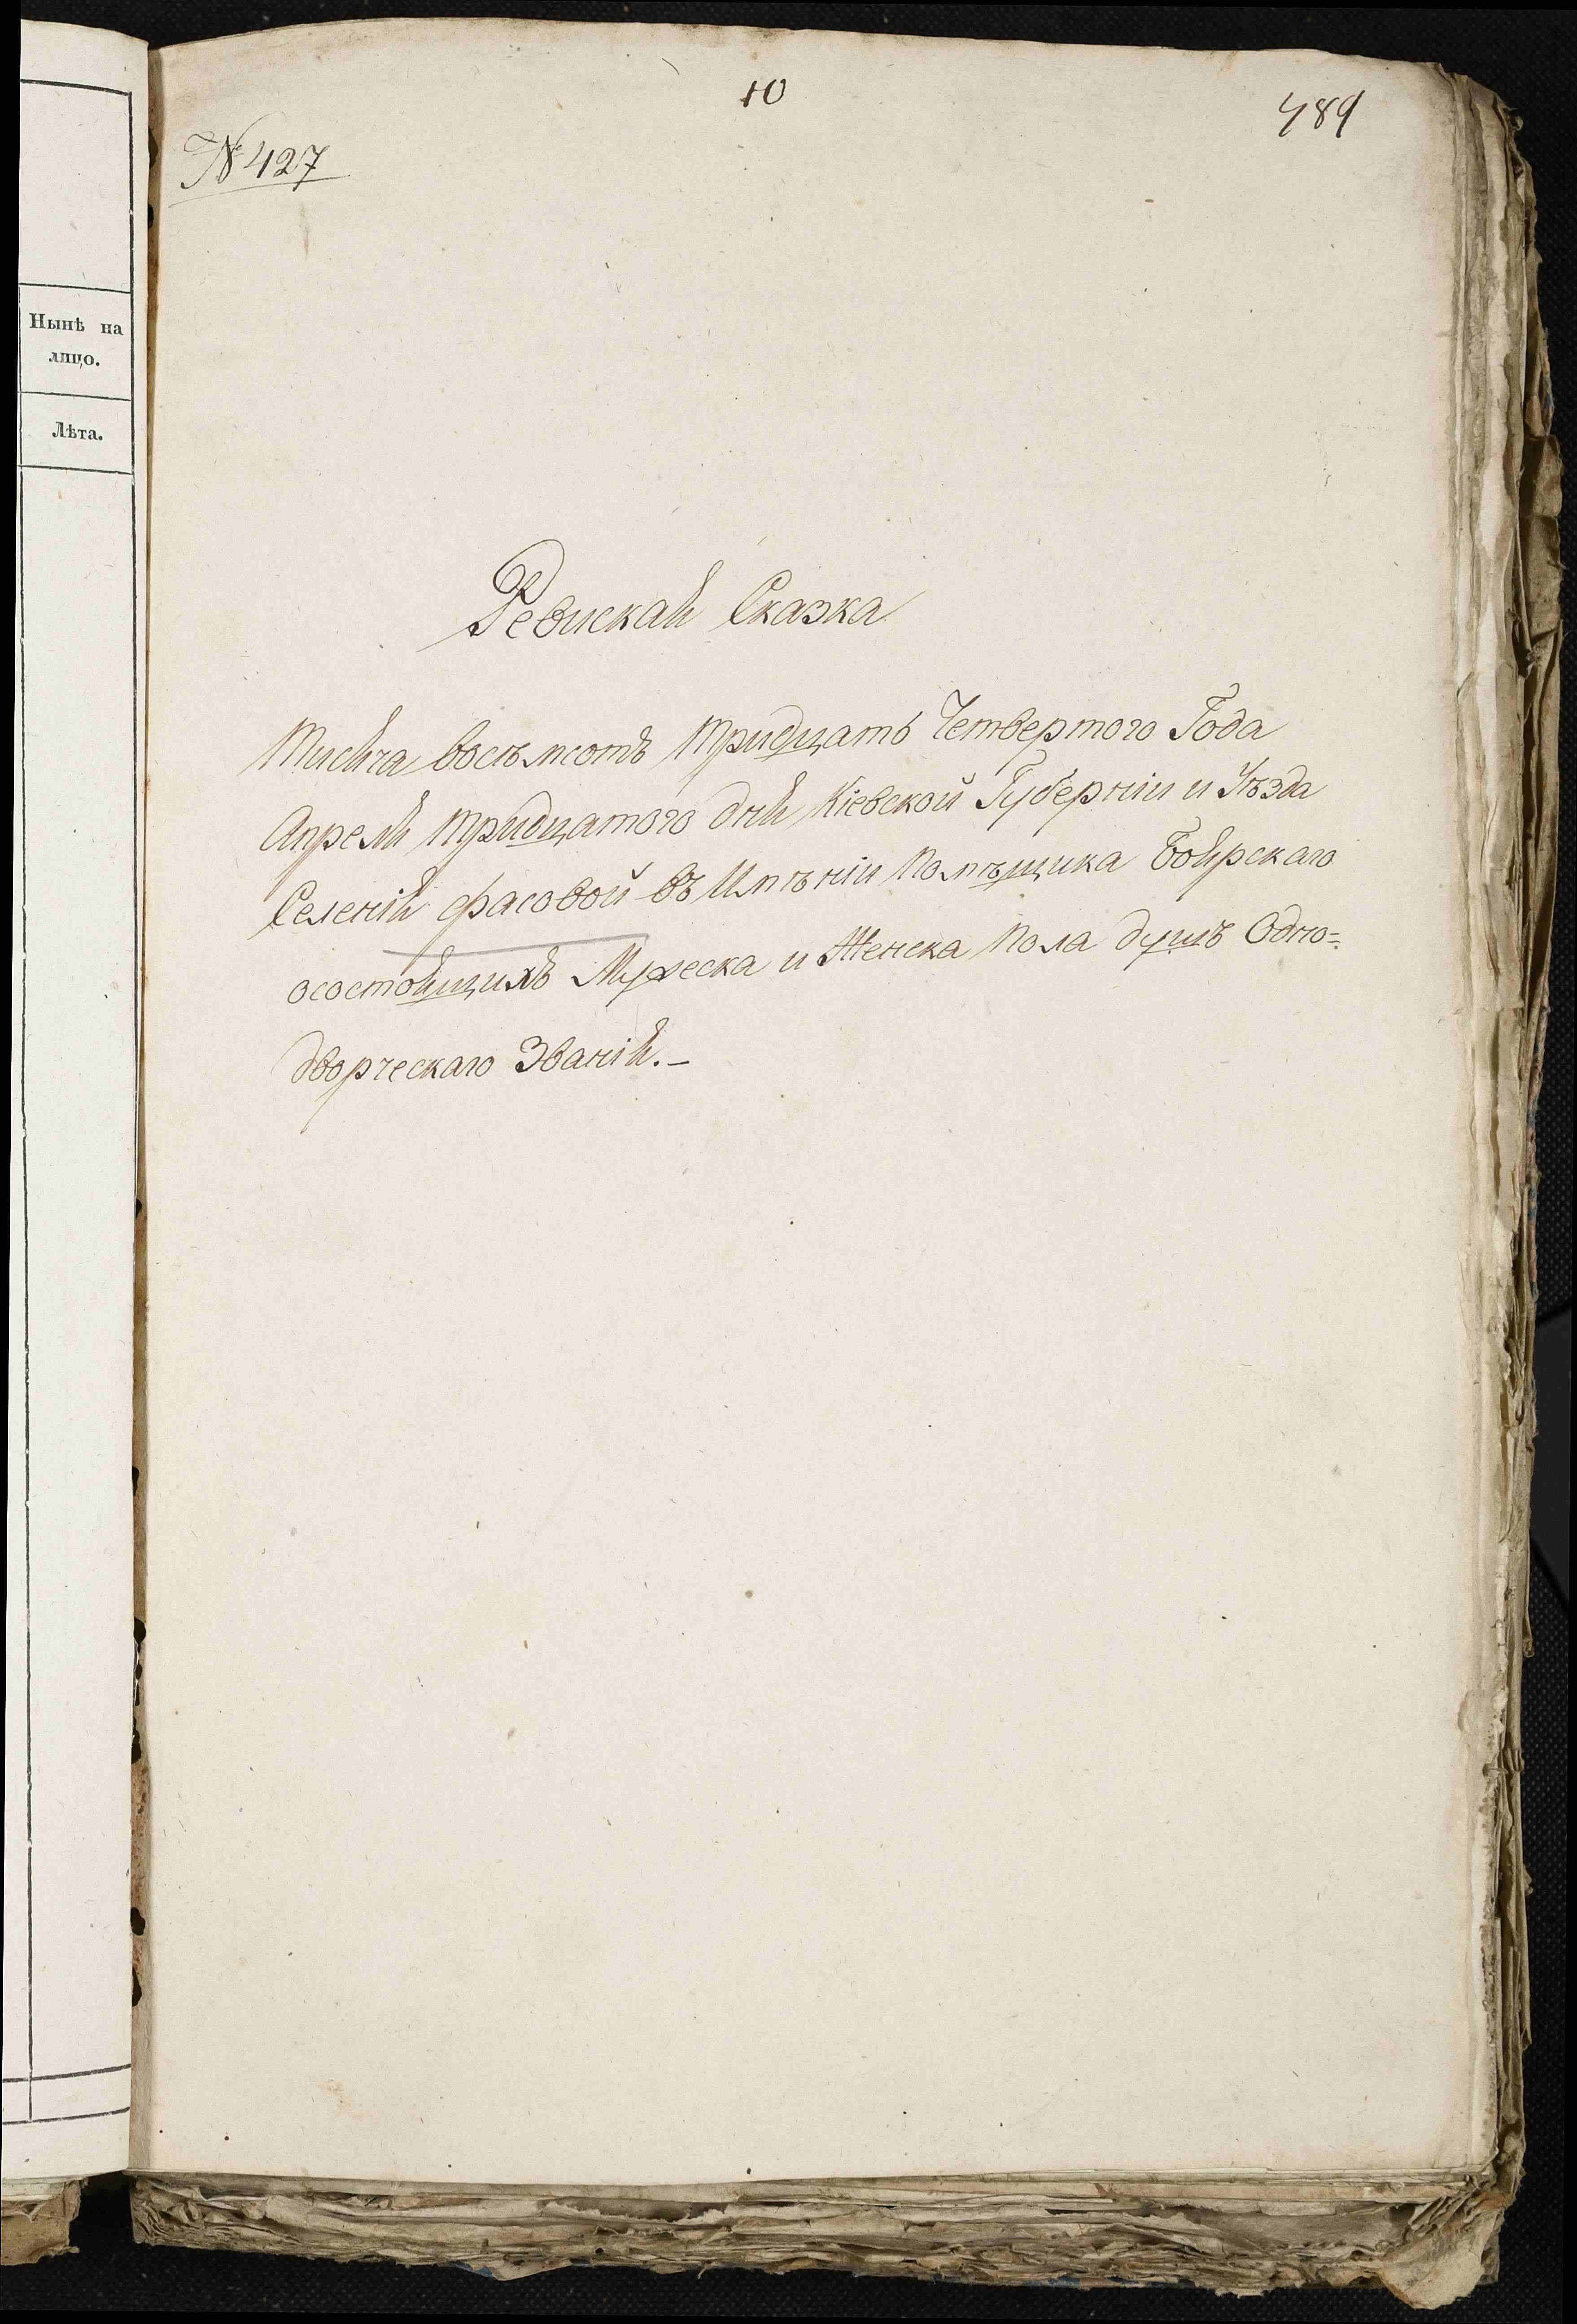 10
489
№ 427
Нынѣ на
лицо.
Лѣта.
Ревиская Сказка
Тисяча восѣмсотъ Тридцать Четвертого Года
Апреля тридцатого дня Кіевской Губерніи и Уѣзда
Селенія Фасовой въ Имѣніи Помѣщика Боярскаго
осостоящихъ Мужеска и Женска Пола душъ Одно=
дворческаго Званія.–